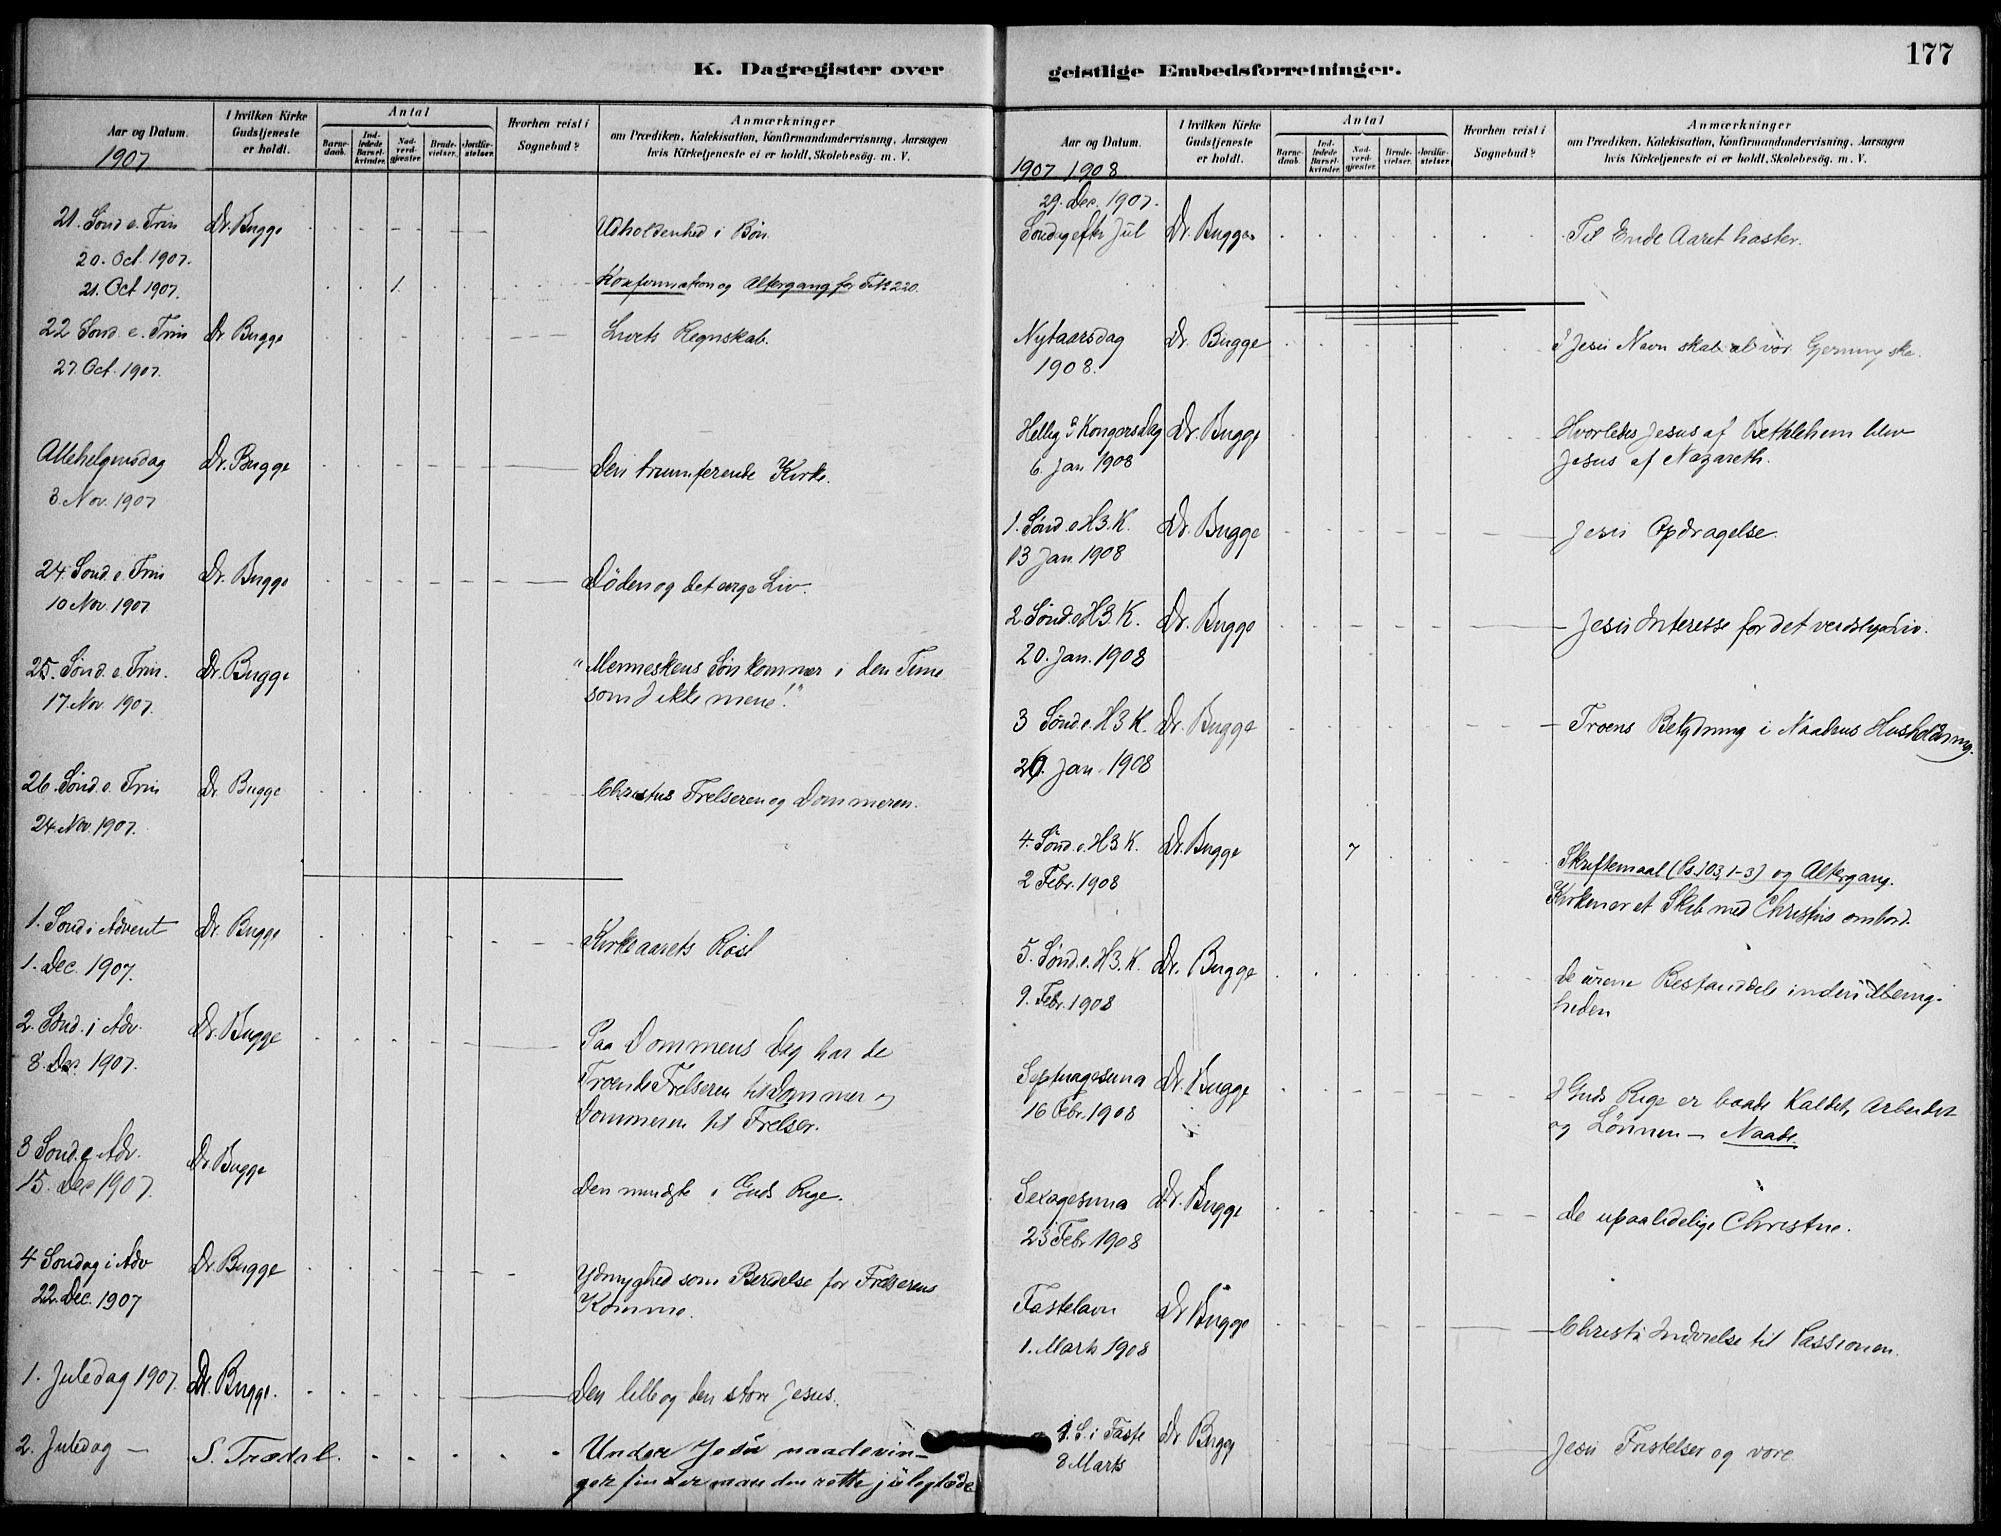 177
K. Dagregister over
geistlige Embedsforretninger.
Aar og Datum.
1907
I hvilken Kirke
Gudstjeneste
er holdt.
Antal
Barne-
daab.
Ind-
ledede
Barsel-
kvinder.
Nad-
verd-
gjester.
Brude-
vielser.
Jordfæ-
stelser.
Hvorhen reist i
Sognebud?
Anmærkninger
om Prædiken, Katekisation, Konfirmandundervisning, Aarsagen
hvis Kirketjeneste ei er holdt, Skolebesög. m. V.
21. Sönd e. Trin Dr. Bugge Udholdenhed i Bön.
20. Oct. 1907.
21. Oct 1907. 1 Konfirmation og Altergang for
22 Sönd. e. Trin Dr. Bugge Livets Regnskab.
27 Oct. 1907.
Allehelgensdag Dr. Bugge Den triumferende Kirke.
3. Nov. 1907
24. Sönd. e. Trin Dr. Bugge Döden og det evige Liv.
10 Nov. 1907
25. Sönd. e. Trin. Dr. Bugge "Menneskens Sön kommer i den Time
17. Nov. 1907. som I ikke mene!"
26. Sönd. e. Trin Dr. Bugge Christus Frelseren og Dommeren.
24. Nov. 1907.
1. Sönd i Advent Dr. Bugge Kirkeaarets Röst
1. Dec. 1907.
2. Sönd. i Adv. Dr. Bugge Paa Dommens Dag har de
8. Dec. 1907. Troende Frelseren til Dommer og
Dommeren til Frelser.
3 Sönd. e Adv. Dr. Bugge
15. Dec 1907. Den mindste i Guds Rige.
4 Söndag i Adv Dr. Bugge Ydmyghed som Beredelse for Frelserens
22. Dec. 1907 Komme.
1. Juledag 1907. Dr. Bugge. Den lille og den store Jesus.
2. Juledag — S. Trædal. Under Jesu naadevin-
ger finder man den rette juleglæde
Aar og Datum.
1907 1908
I hvilken Kirke
Gudstjeneste
er holdt.
Antal
Barne-
daab.
Ind-
ledede
Barsel-
kvinder.
Nad-
verd-
gjester.
Brude-
vielser.
Jordfæ-
stelser.
Hvorhen reist i
Sognebud?
Anmærkninger
om Prædiken, Katekisation, Konfirmandundervisning, Aarsagen
hvis Kirketjeneste ei er holdt, Skolebesög. m. V.
29. Dec. 1907.
Söndag efter Jul Dr. Bugge Til Ende Aaret haster.
Nytaarsdag Dr. Bugge I Jesu Navn skal al vor Gjerning ske.
1908.
Hellig 3 Kongersdag Dr. Bugge Hvorledes Jesus af Bethlehem blev
6. Jan. 1908 Jesus af Nazareth.
1. Sönd. e H3.K. Dr. Bugge Jesu Opdragelse.
13 Jan. 1908
2. Sönd. e H3.K. Dr. Bugge Jesu Interesse for det verdslige Liv.
20. Jan. 1908
3 Sönd. e. H3 K. Dr. Bugge Troens Betydning i Naadens Husholdning.
26. Jan. 1908
4. Sönd. e. H3 K. Dr. Bugge 7 Skriftemaal (Ps. 103, 1-3) og Altergang.
2 Febr. 1908 Kirken er et Skib med Christus ombord.
5. Sönd. e. H3. K. Dr. Bugge De urene Bestanddele i
9. Febr. 1908 heden
Septuagesima Dr. Bugge I Guds Rige er baade Kaldet, Arbeidet
16 Febr. 1908 og Lönnen — Naade.
Sexagesima Dr. Bugge De upaalidelige Christne.
23 Febr 1908
Fastelavn Dr Bugge Christi Indvielse til Passionen.
1. Marts 1908
1. S. i Faste Dr Bugge Jesu Fristelser og vore
8 Marts